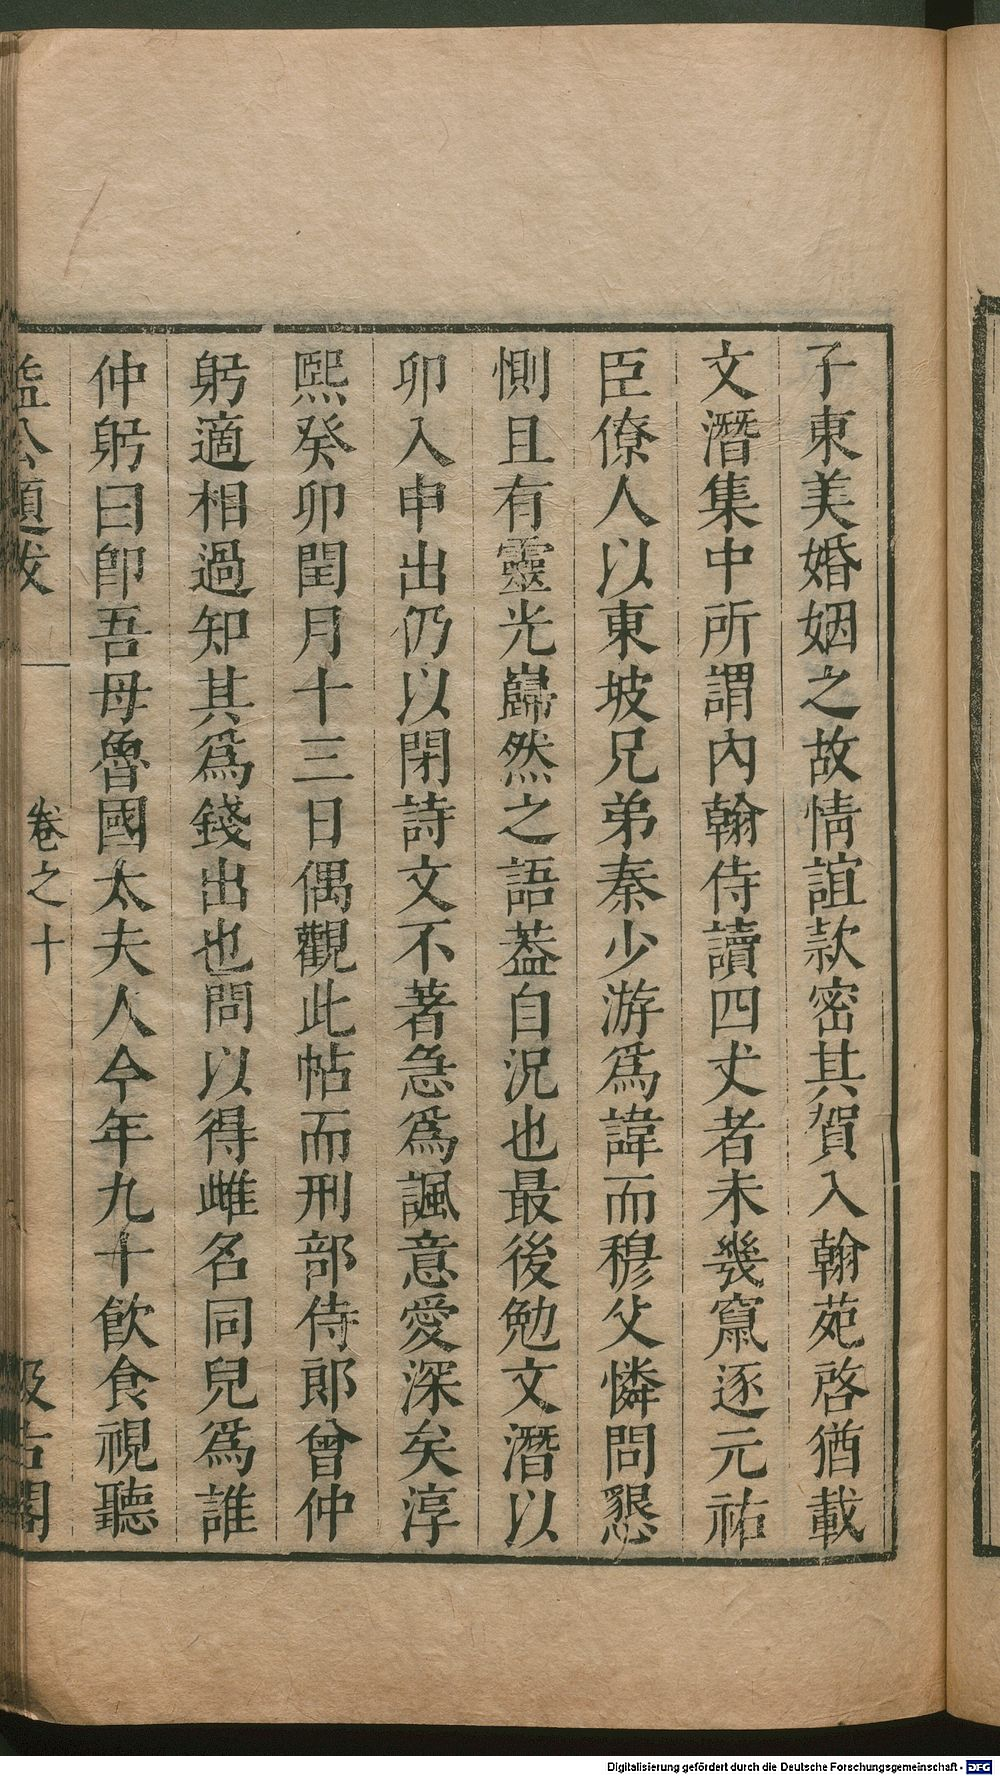 子東美婚姻之故情誼款密其賀入翰苑啓猶載
文潛集中所謂內翰侍讀四丈者未幾竄逐元祐
臣僚人以東坡兄弟秦少游爲諱而穆父憐問懇
惻且有靈光巋然之語葢自況也最後勉文潛以
卯入申出仍以閉詩文不著急爲諷意愛深矣淳
熙癸卯閏月十三日偶觀此帖而刑部侍郎曾仲
躬適相過知其爲錢出也問以得雌名同兒爲誰
仲躬曰卽吾母魯國太夫人今年九十飲食視聽
益公題跋
卷之十
汲古閣
Digitalisierung gefördert durch die Deutsche Forschungsgemeinschaft - DFG